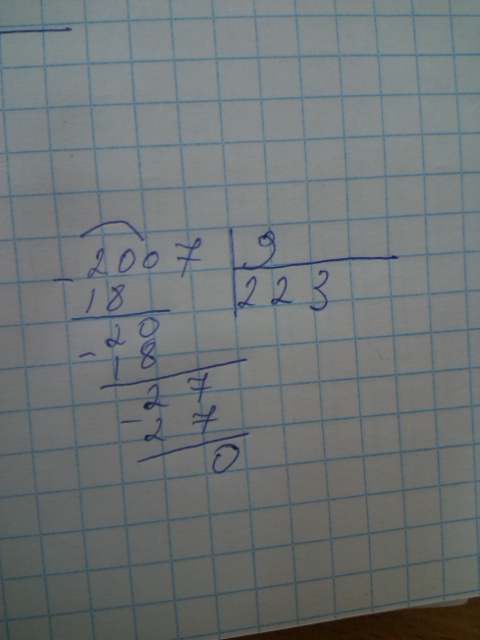 - 2007 | 9
18 | 223
- 20
18
- 27
27
0